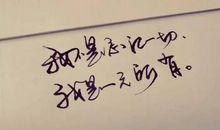 我不是忘记一切.
我是一无所有。